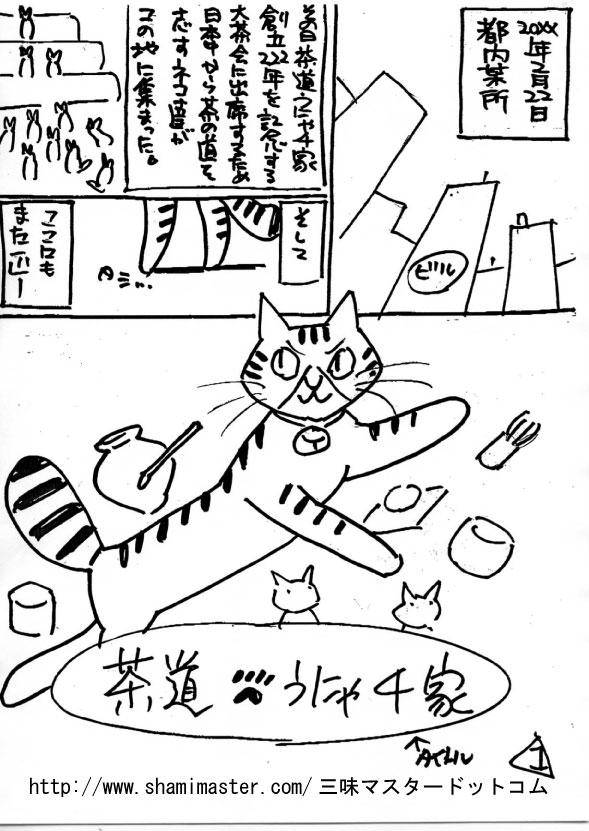 20XX年2月22日
都内某所
ビル
その日茶道うにゃ千家
創立222年を記念する
大茶会に出席するため
日本中から茶の道を
志すネコ達が
この地に集まった。
そして
タシ…
ここにも
また一匹ー
茶道 うにゃ千家
↑タイトル
1
http://www.shamimaster.com/ 三味マスタードットコム